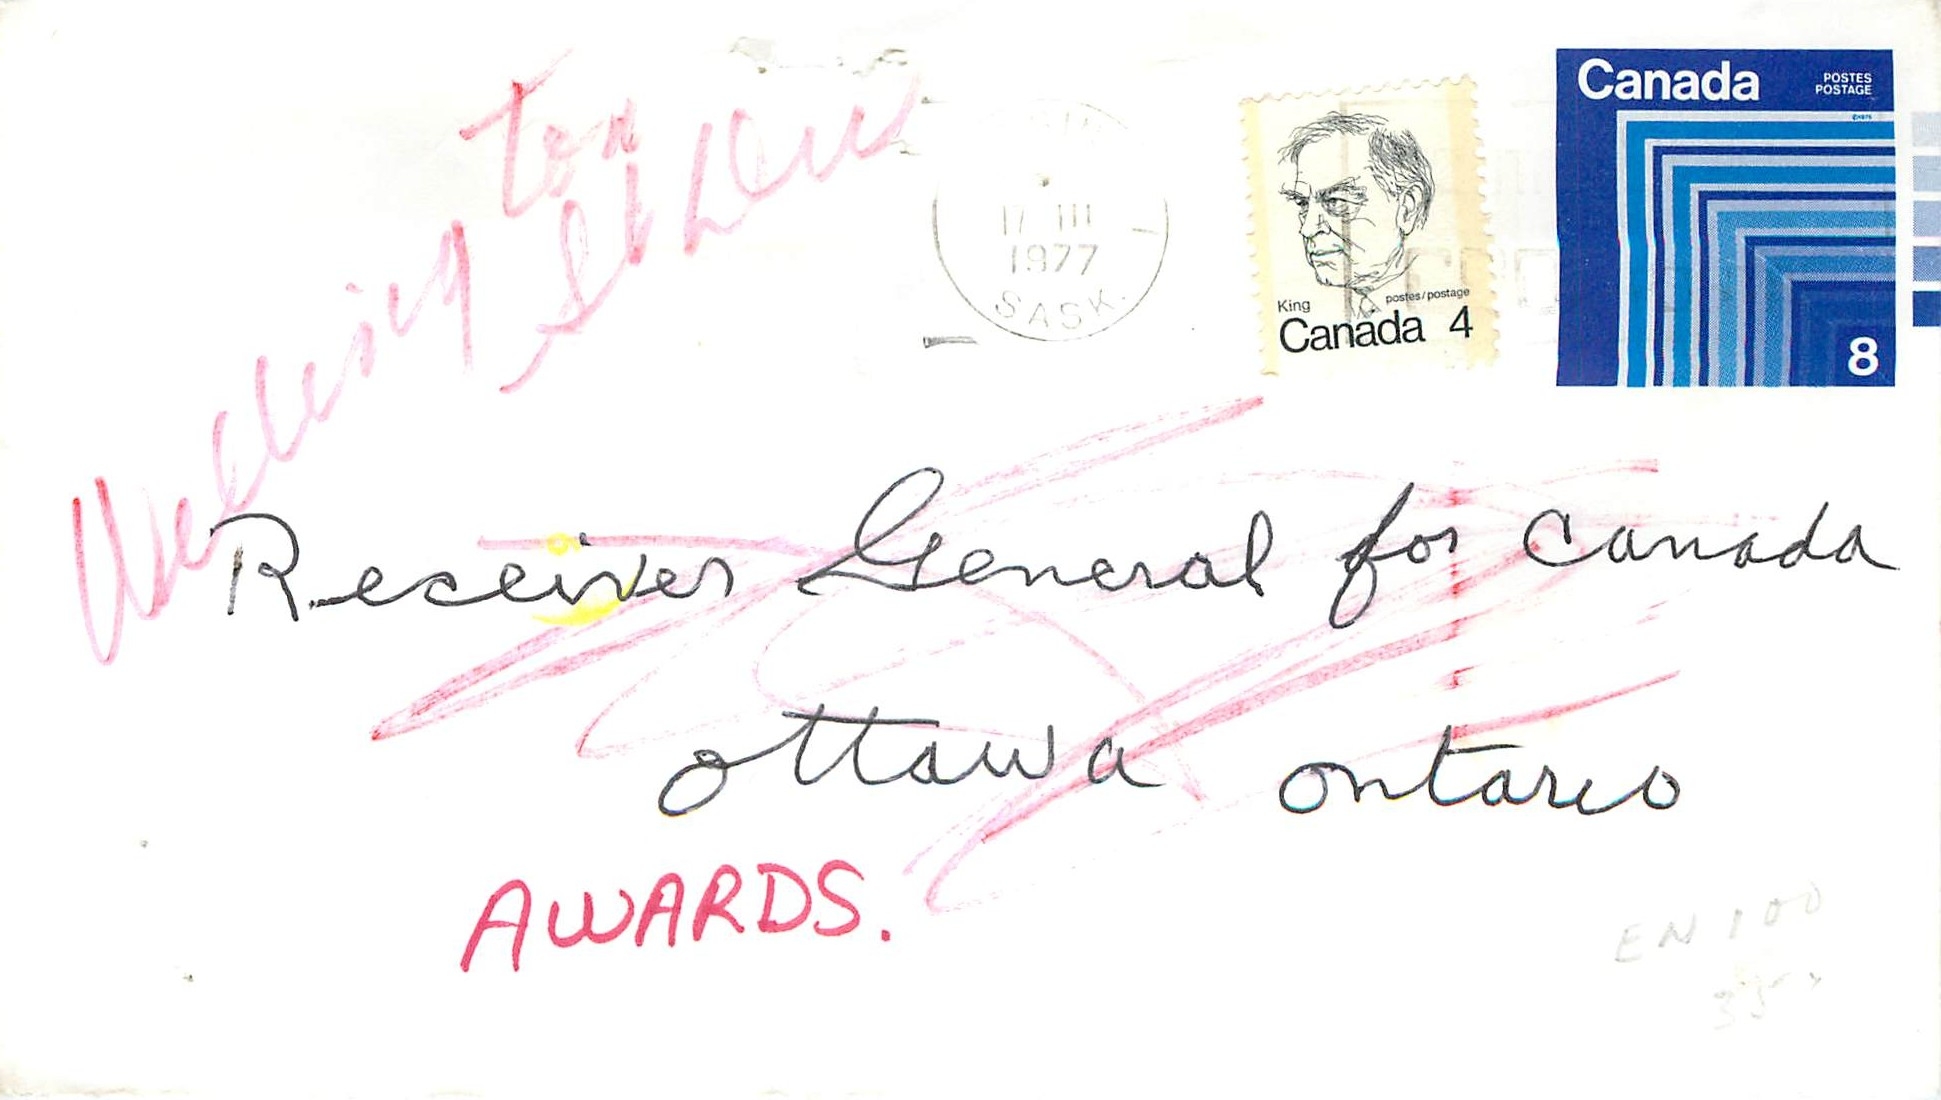 Canada
POSTES
POSTAGE
8
King
postes/postage
Canada 4
17 III
1977
SASK.
Receiver General for Canada
Ottawa Ontario
AWARDS.
EN 100